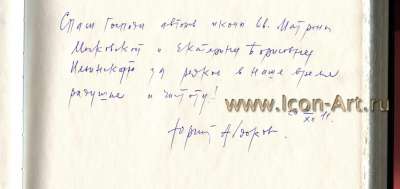 Спаси Господи автора иконы Св. Матроны
Московской и Екатерину Борисовну
Ильинскую за редкое в наше время
радушие и чистоту!
www.Icon-Art.ru
XI 11.
Юрий